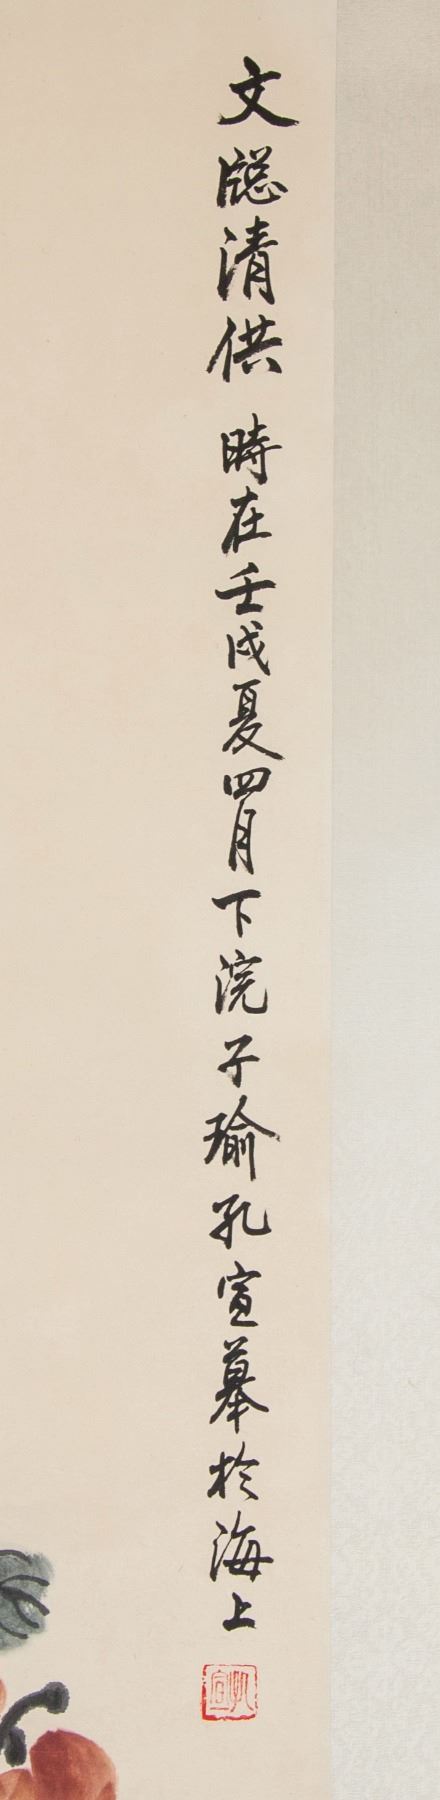 文牕清供 時在壬戌夏四月下浣子瑜孔宣摹於海上
孔宣